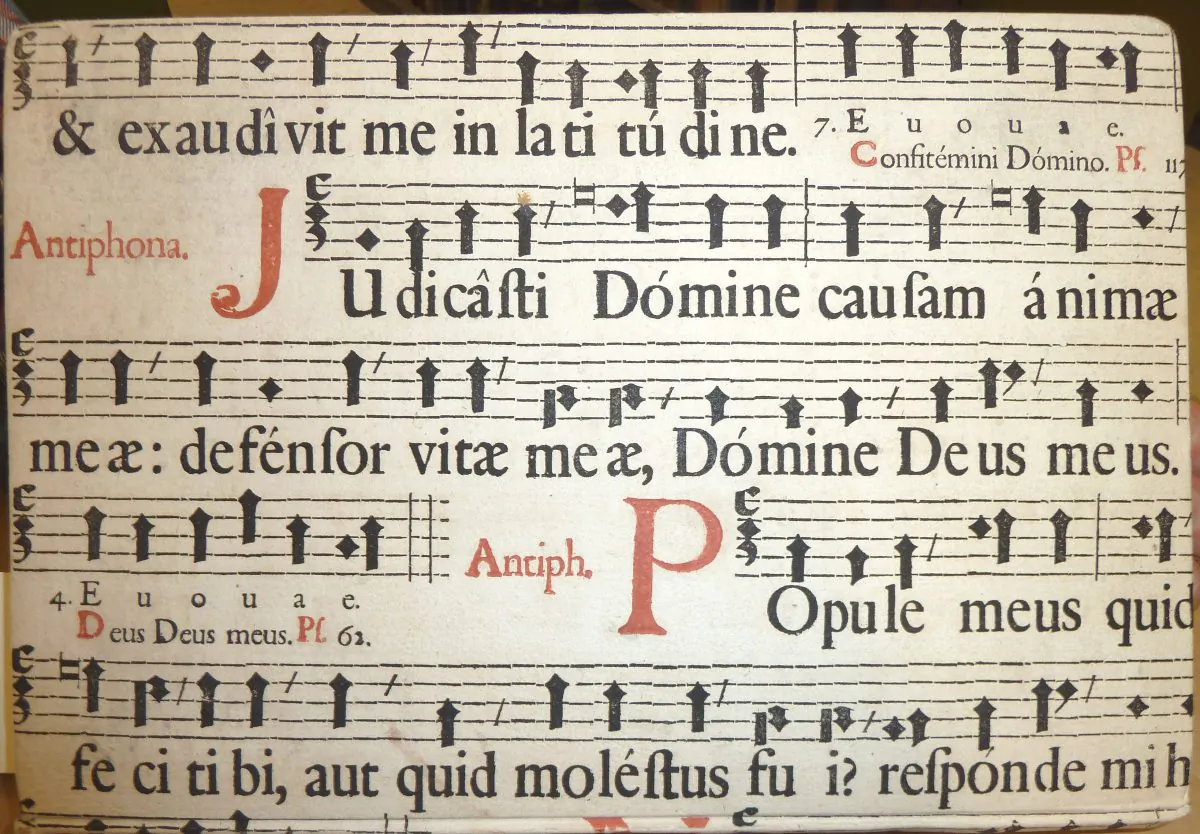 & exaudîvit me in latitúdine. 7. E u o u a e.
Confitémini Dómino. Pſ. 117
Antiphona. JUdicâſti Dómine cauſam ánimæ
meæ: defénſor vitæ meæ, Dómine Deus meus.
4. E u o u a e.
Deus Deus meus. Pſ. 62.
Antiph. POpule meus quid
feci tibi, aut quid moléſtus fui? reſpónde mih